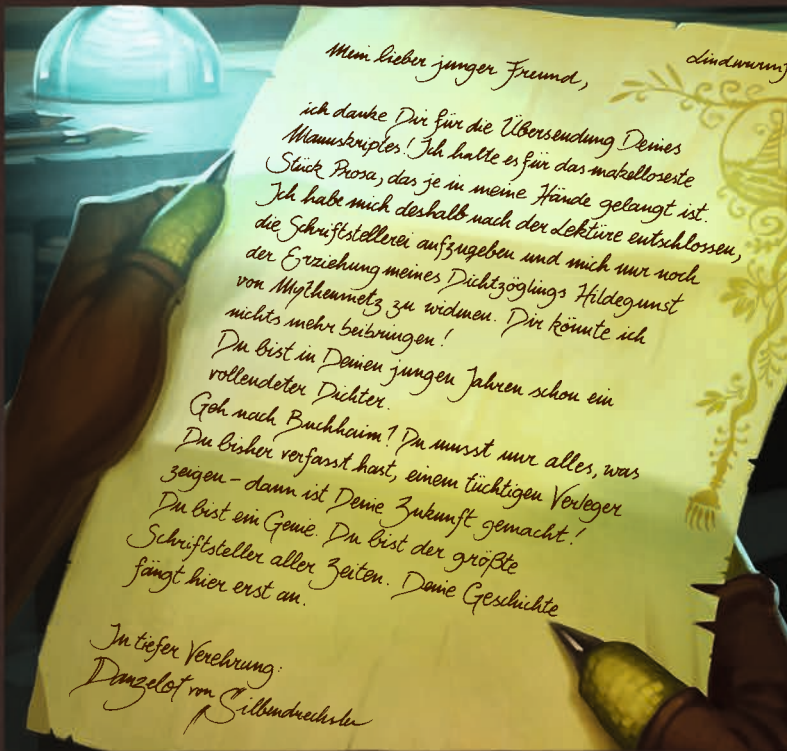 Mein lieber junger Freund,
Lindwurmf
ich danke Dir für die Übersendung Deines
Manuskriptes! Ich halte es für das makelloseste
Stück Prosa, das je in meine Hände gelangt ist.
Ich habe mich deshalb nach der Lektüre entschlossen,
die Schriftstellerei aufzugeben und mich nur noch
der Erziehung meines Dichtzöglings Hildegunst
von Mythenmetz zu widmen. Dir könnte ich
nichts mehr beibringen!
Du bist in Deinen jungen Jahren schon ein
vollendeter Dichter.
Geh nach Buchhaim! Du musst nur alles, was
Du bisher verfasst hast, einem tüchtigen Verleger
zeigen – dann ist Deine Zukunft gemacht!
Du bist ein Genie. Du bist der größte
Schriftsteller aller Zeiten. Deine Geschichte
fängt hier erst an.
In tiefer Verehrung:
Danzelot von Silbendrechsler